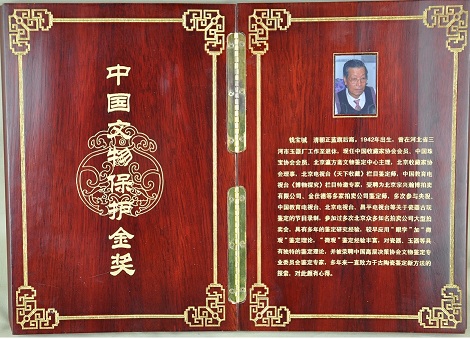 中国文物保护金奖
钱宝城 清朝正蓝旗后裔。1942年出生,曾在河北省三
河市玉器厂工作至退休。现任中国收藏家协会会员,中国珠
宝协会会员,北京瀛方斋文物鉴定中心主理,北京收藏家协
会理事,北京电视台《天下收藏》栏目鉴定师,中国教育电视
台《博物探究》栏目特邀专家,受聘为北京宋兴瀚博拍卖
有限公司、金仕德等多家拍卖公司鉴定师,多次参与央视、
中国教育电视台、北京电视台、昌平电视台等关于瓷器古玩
鉴定的节目录制,参加过多次北京众多知名拍卖公司大型拍
卖会。具有多年的鉴定研究经验,较早应用"眼学"加"微
观"鉴定理论。"微观"鉴定经验丰富,对瓷器、玉器等具
有独特的鉴定理论,并被荣聘中国高层决策协会文物鉴定专
业委员会鉴定专家,多年来一直致力于古陶瓷鉴定新方法的
探索,对此颇有心得。